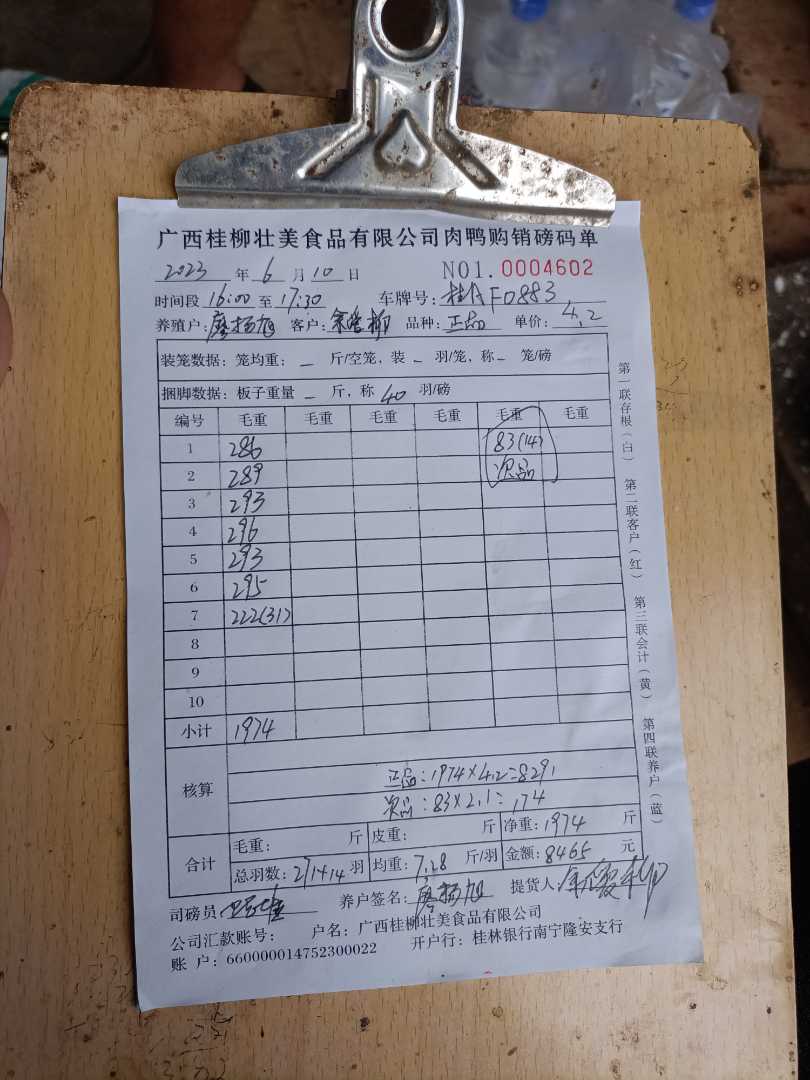 广西桂柳壮美食品有限公司肉鸭购销磅码单
2023 年 6 月 10 日 NO1. 0004602
时间段 16:00 至 17:30 车牌号: 桂 F0883
养殖户: 廖扬旭 客户: 品种: 正品 单价: 4.2
装笼数据: 笼均重: — 斤/空笼, 装 - 羽/笼, 称 - 笼/磅
捆脚数据: 板子重量 — 斤, 称 40 羽/磅
编号 毛重 毛重 毛重 毛重 毛重 毛重
1 286 83(14)
2 289 次品
3 293
4 296
5 293
6 295
7 222(31)
8
9
10
小计 1974
核算
正品: 1974×4.2=8291
次品: 83×2.1=174
合计
毛重: 斤 皮重: 斤 净重: 1974 斤
总羽数: 271+14 羽 均重: 7.28 斤/羽 金额: 8465 元
司磅员 养户签名: 廖扬旭 提货人:
公司汇款账号: 户名: 广西桂柳壮美食品有限公司
账 户: 660000014752300022 开户行: 桂林银行南宁隆安支行
第一联存根(白)
第二联客户(红)
第三联会计(黄)
第四联养户(蓝)